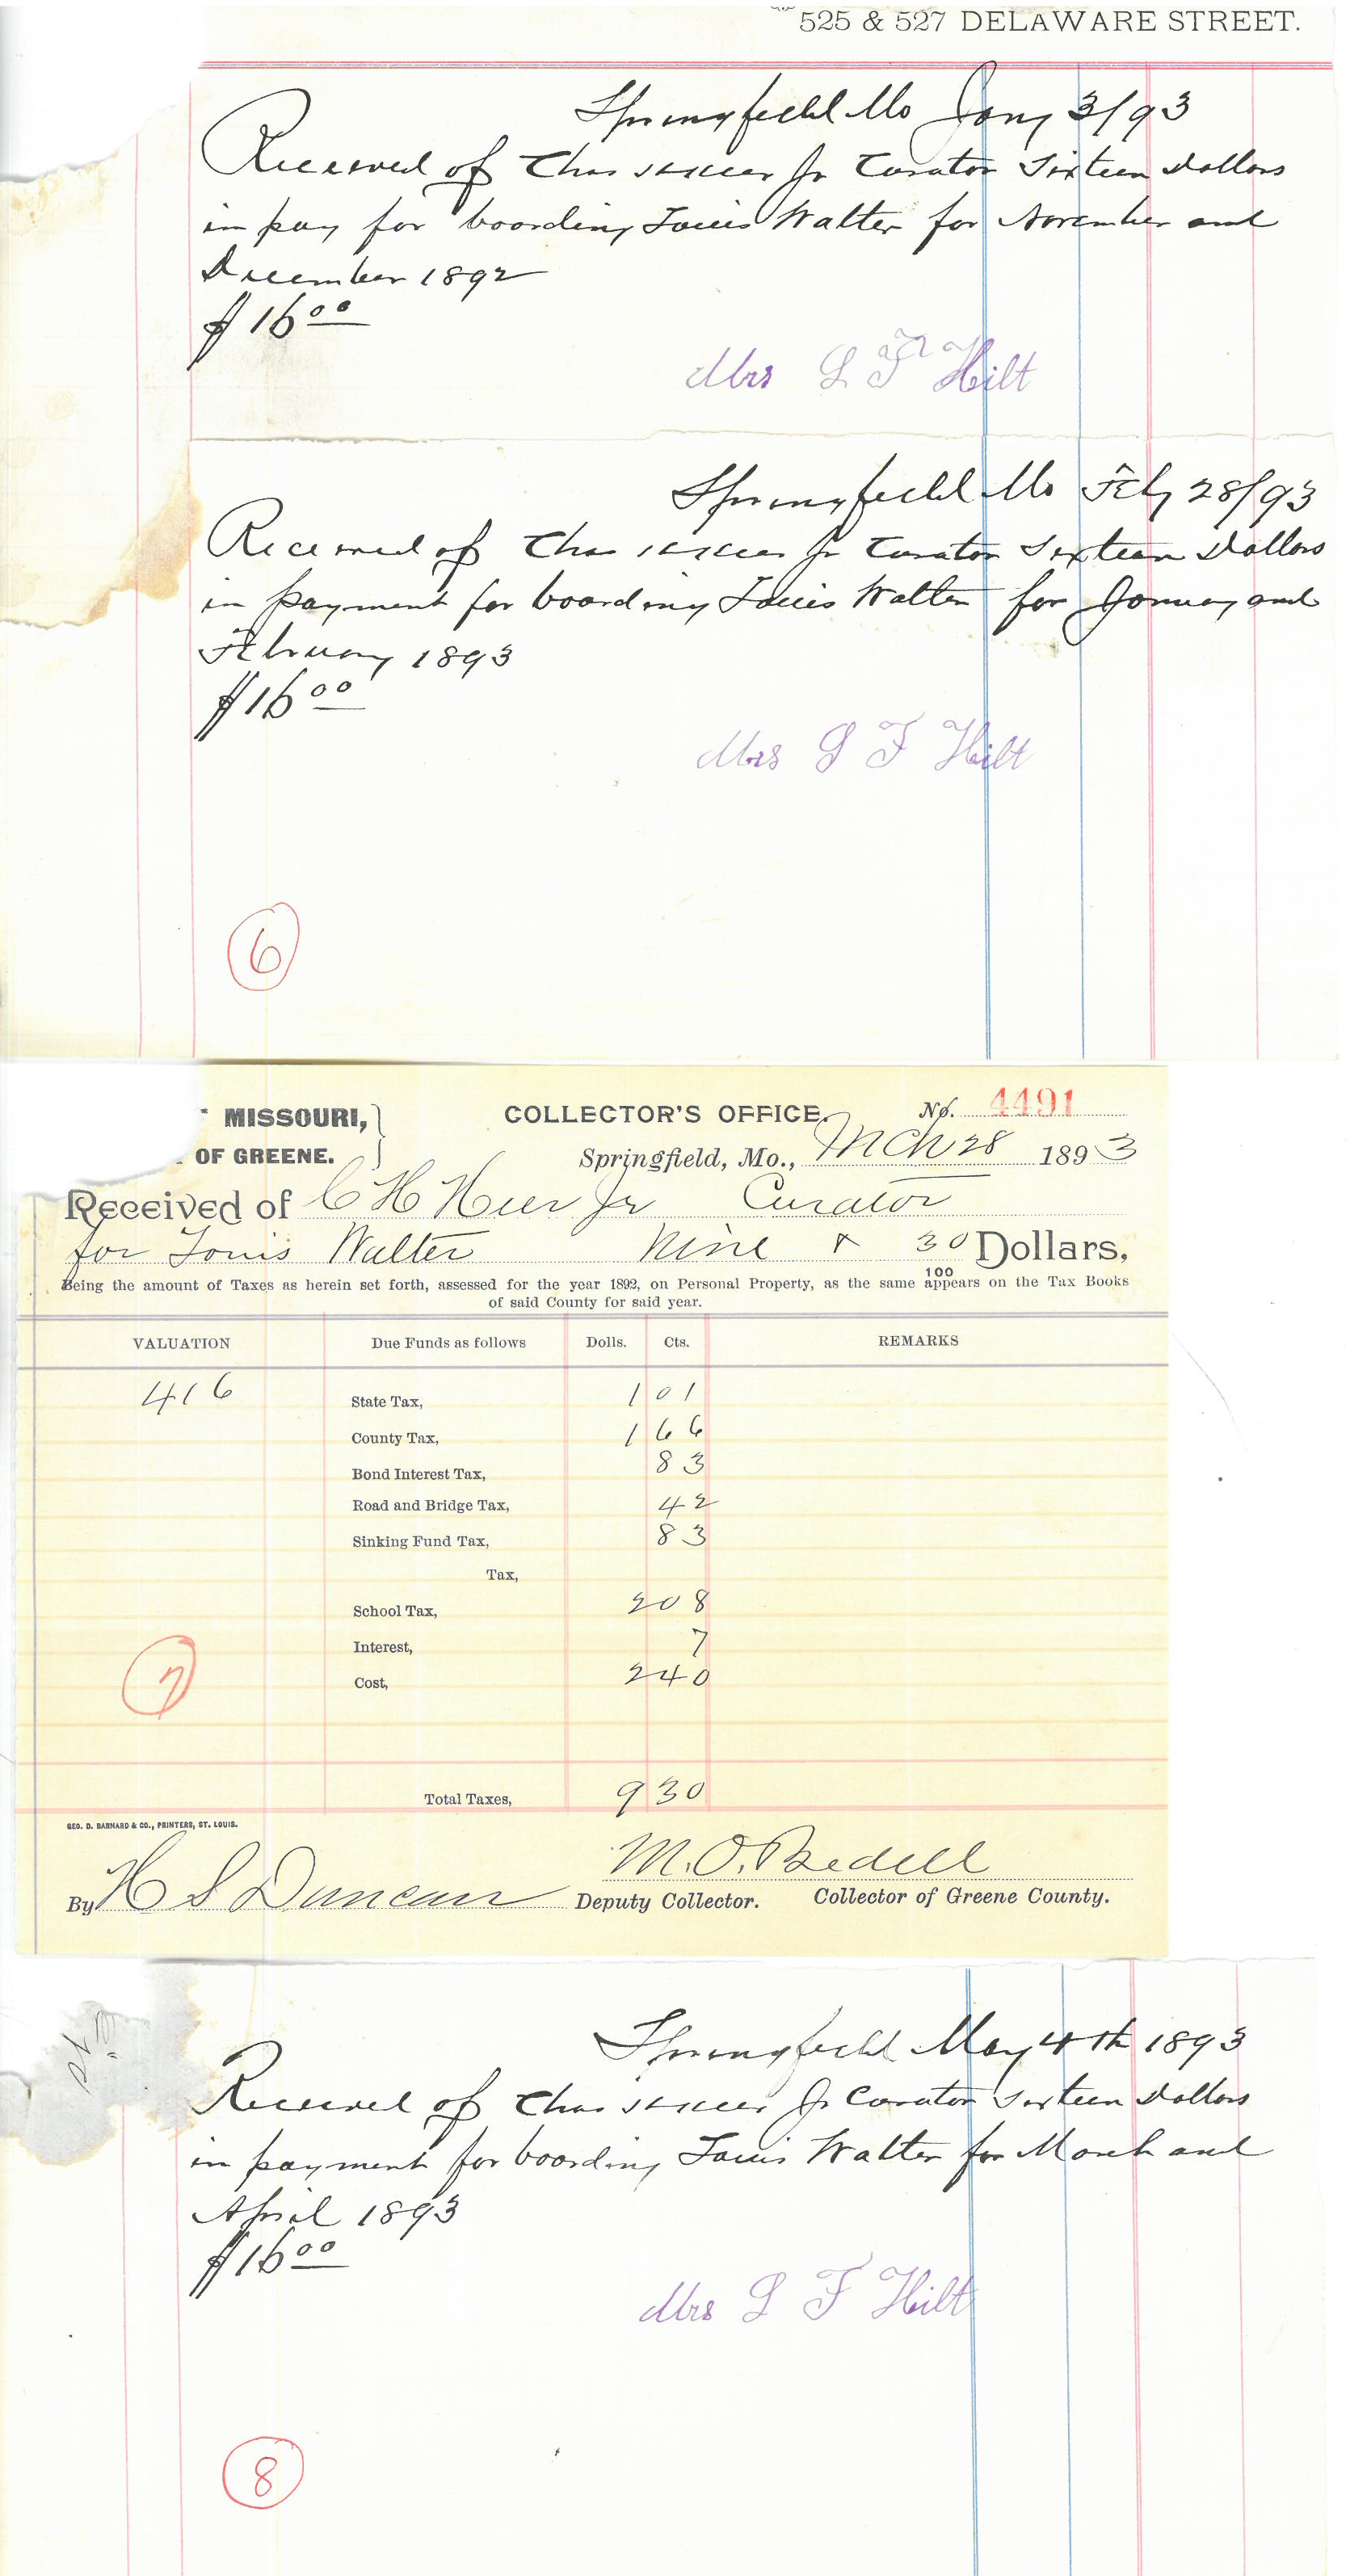 525 & 527 DELAWARE STREET.
Springfield Mo Jany 3/93
Received of Chas Jr Curator Sixteen Dollars
in pay for boarding Louis Walter for November and
December 1892
$16 00
Mrs L F Hilt
Springfield Mo Feby 28/93
Received of Chas Jr Curator Sixteen Dollars
in payment for boarding Louis Walter for January and
February 1893
$16 00
Mrs L F Hilt
6
MISSOURI,
OF GREENE.
COLLECTOR'S OFFICE.
No. 4491
Springfield, Mo., Mch 28 1893
Received of C H Heer Jr Curator
for Louis Walter Nine & 30/100 Dollars,
Being the amount of Taxes as herein set forth, assessed for the year 1892, on Personal Property, as the same appears on the Tax Books
of said County for said year.
VALUATION Due Funds as follows Dolls. Cts. REMARKS
416 State Tax, 1 01
County Tax, 1 66
Bond Interest Tax, 83
Road and Bridge Tax, 42
Sinking Fund Tax, 83
Tax,
School Tax, 2 08
Interest, 7
7
Cost, 2 40
Total Taxes, 9 30
GEO. D. BARNARD & CO., PRINTERS, ST. LOUIS.
M. O. Bedell
By H S Duncan Deputy Collector. Collector of Greene County.
Springfield May 4th 1893
Received of Chas Jr Curator Sixteen Dollars
in payment for boarding Louis Walter for March and
April 1893
$16 00
Mrs L F Hilt
8